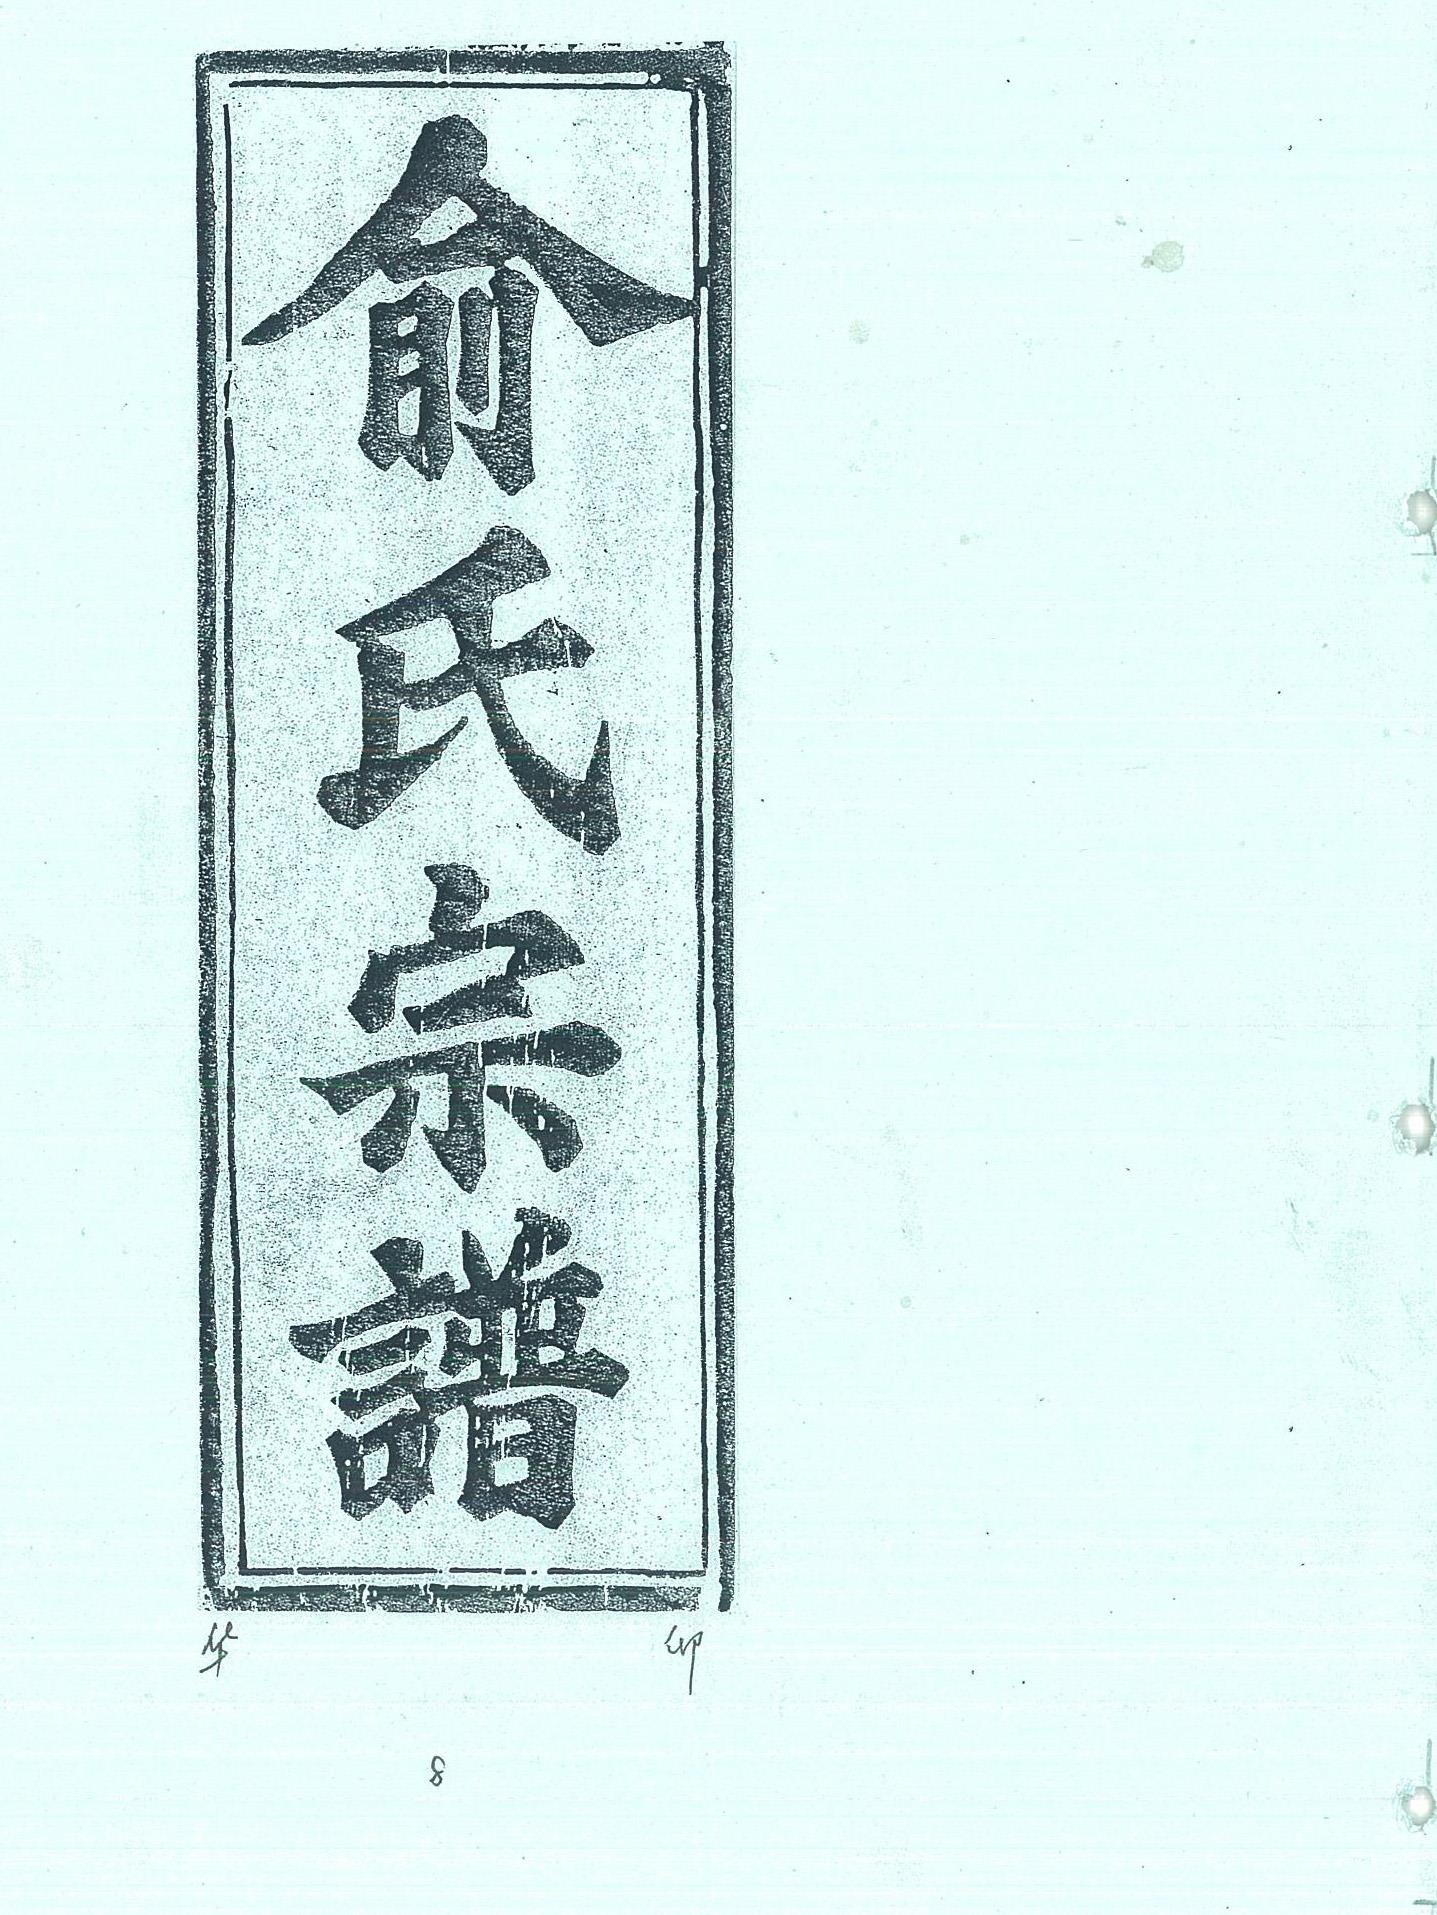 俞氏宗譜
华 印
8